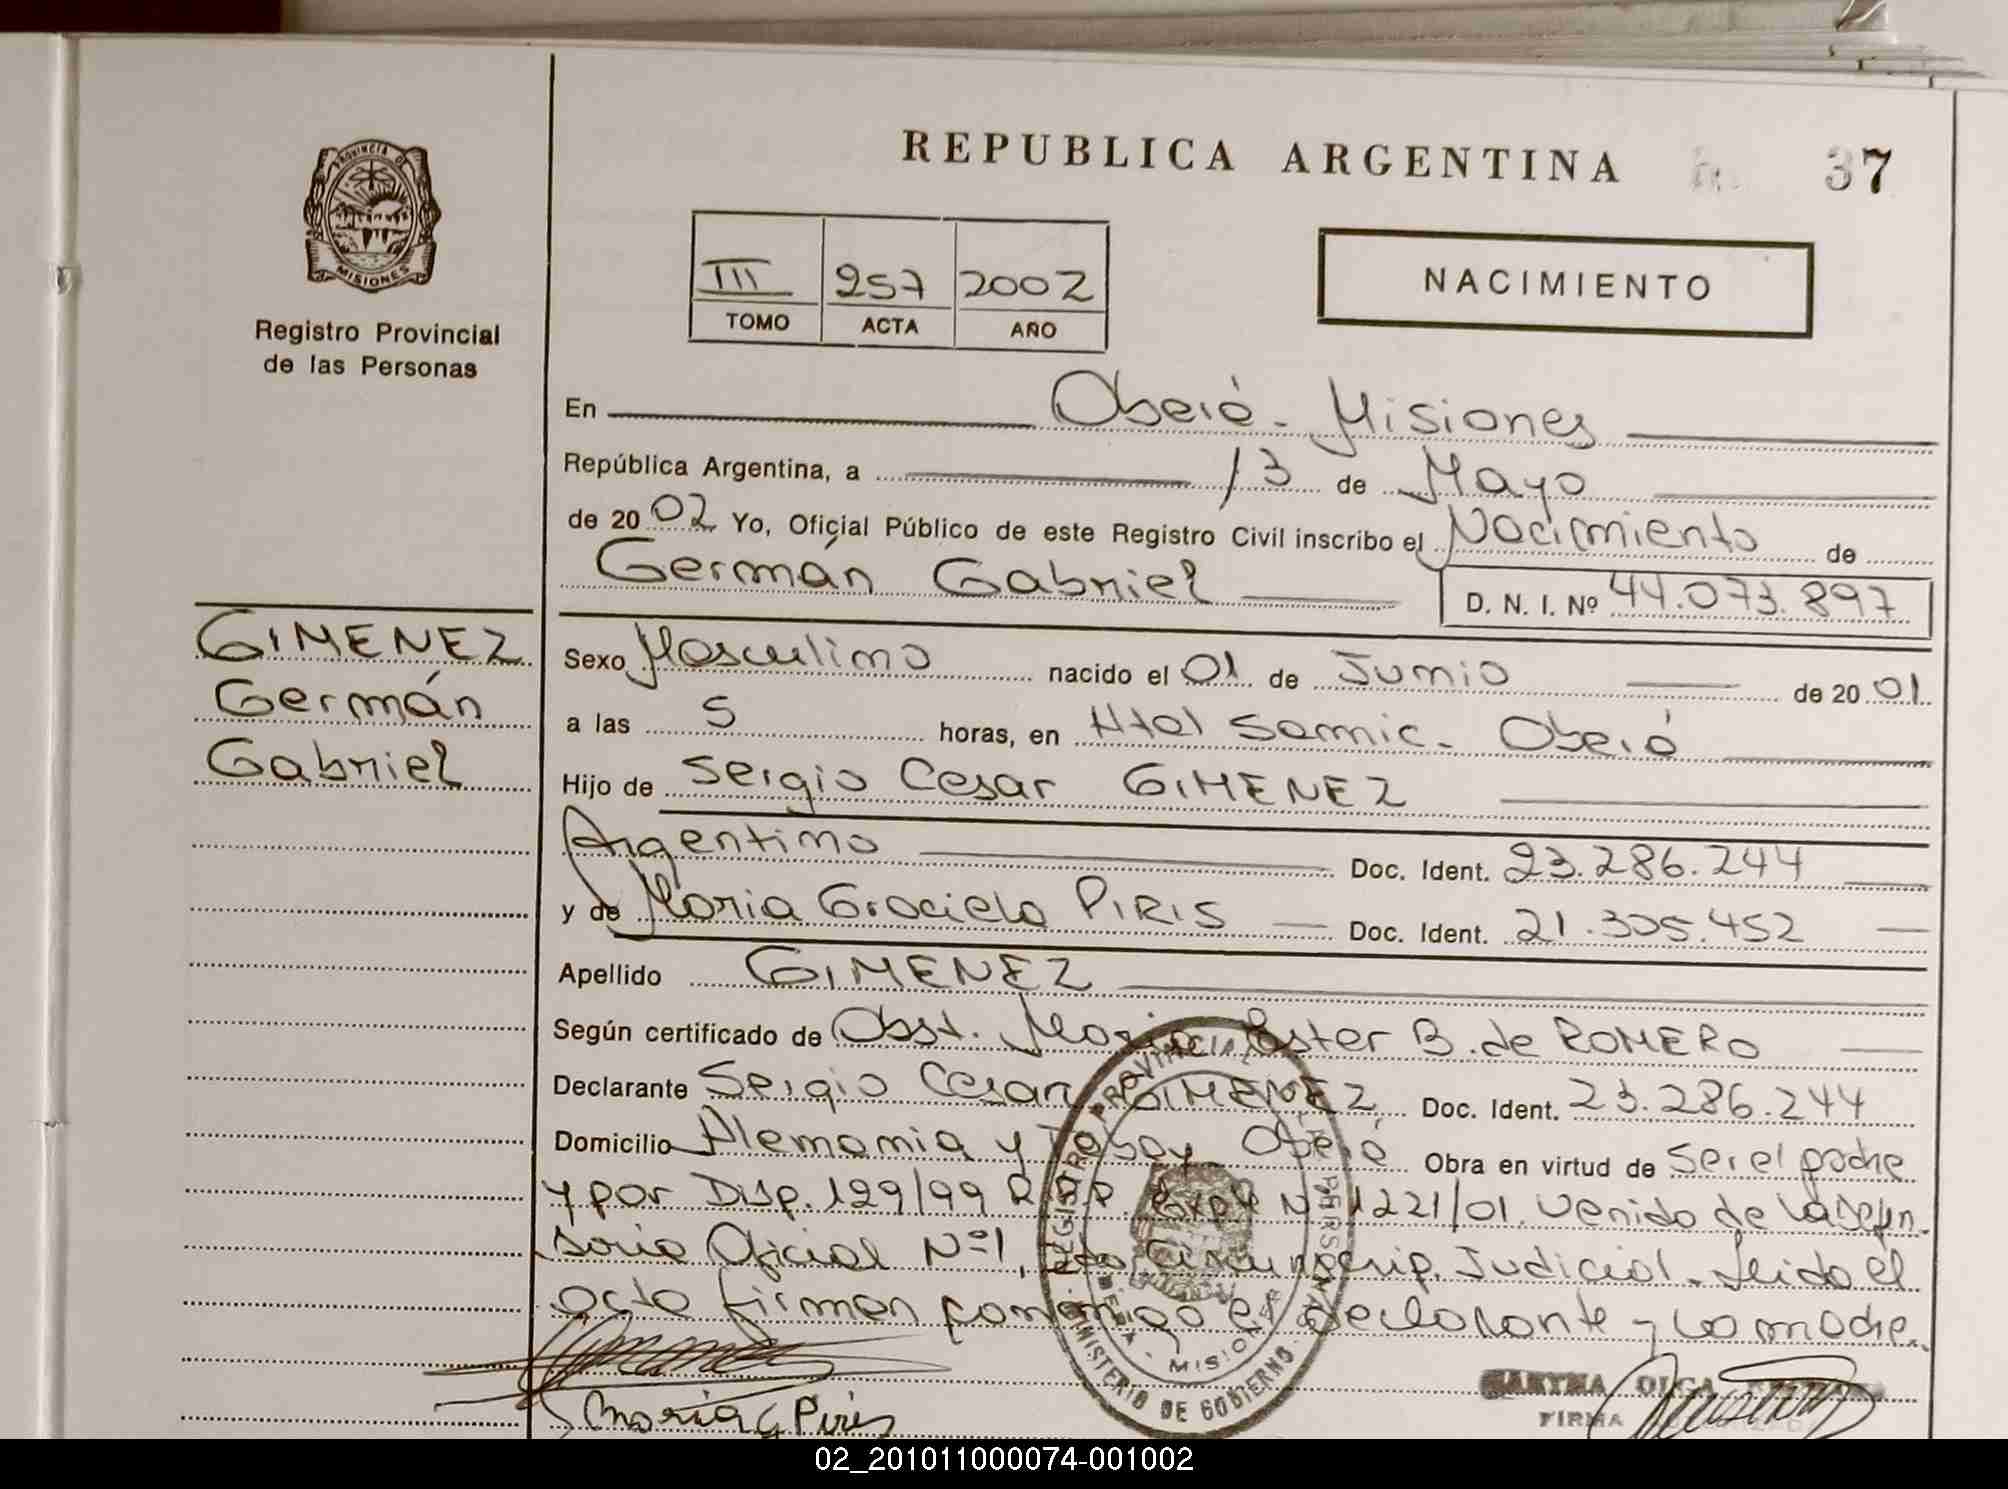 PROVINCIA DE
MISIONES
Registro Provincial
de las Personas
REPUBLICA ARGENTINA
37
III 257 2002
TOMO ACTA AÑO
NACIMIENTO
En Oberá - Misiones
República Argentina, a 13 de Mayo
de 2002 Yo, Oficial Público de este Registro Civil inscribo el Nacimiento de
Germán Gabriel D. N. I. Nº 44.073.897
GIMENEZ
Germán
Gabriel
Sexo Masculino nacido el 01 de Junio de 2001
a las 5 horas, en Htal Samic - Oberá
Hijo de Sergio Cesar GIMENEZ
Argentino Doc. Ident. 23.286.244
y de Maria Graciela PIRIS Doc. Ident. 21.305.452
Apellido GIMENEZ
Según certificado de Obst. Maria Ester B. de ROMERO
Declarante Sergio Cesar GIMENEZ Doc. Ident. 23.286.244
Domicilio Alemania y Oberá Obra en virtud de Ser el padre
y por Disp. 129/99 R.P.P. Expte Nº 1221/01. Venido de la Defen-
soria Oficial Nº1, 2da Circunscrip. Judicial. Leido el
acta firman conmigo el declarante y la madre.
REGISTRO PROVINCIAL DE LAS PERSONAS
MINISTERIO DE GOBIERNO
OBERA - MISIONES
Maria G Piris
OLGA
FIRMA
02_201011000074-001002